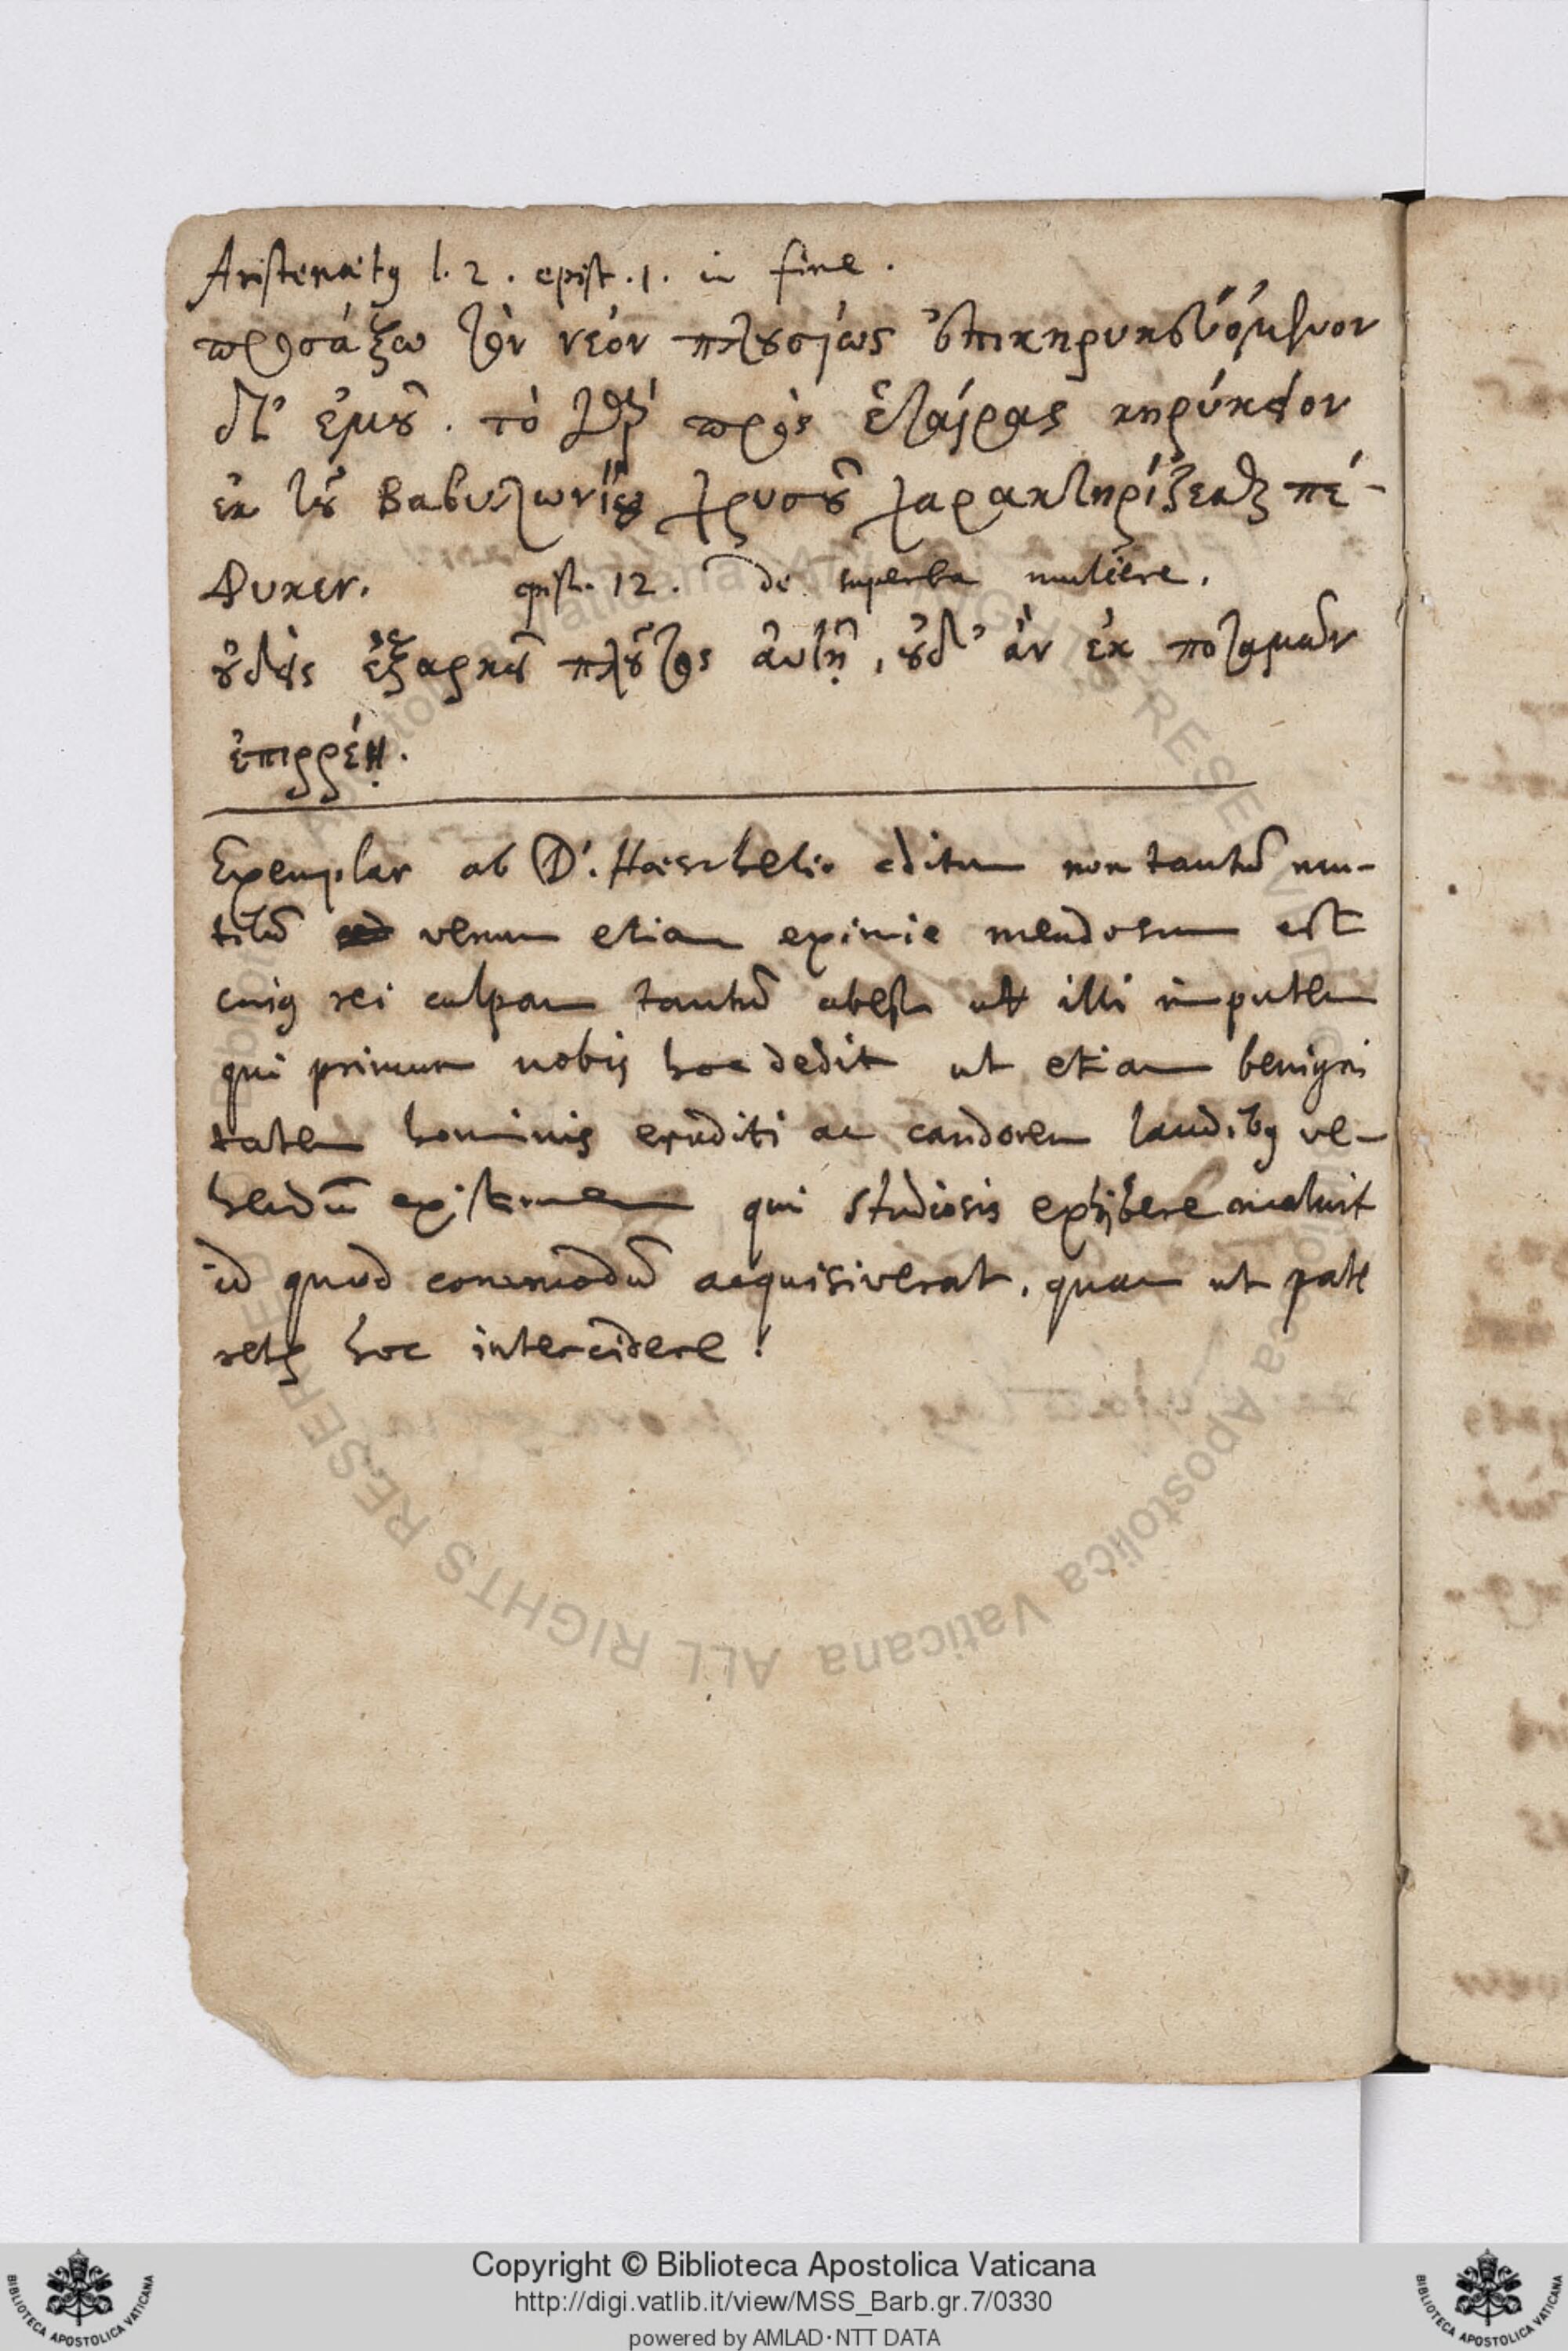 Aristenaetꝰ l. 2. epist. 1. in fine.
προσάξω τὸν νέον πλουσίως ἐπικηρυκευόμενον
δι' ἐμοῦ. τὸ γὰρ πρὸς ἑταίρας κηρύκιον
ἐκ τοῦ Βαβυλωνίου χρυσοῦ χαρακτηρίζεσθαι πέ-
φυκεν. epist. 12. de superba muliere.
οὐδεὶς ἐξαρκεῖ πλοῦτος αὐτῇ, οὐδ' ἂν ἐκ ποταμῶν
ἐπιρρέῃ.
Exemplar ab D. Hoeschelio editum non tantũ mu-
tilũ verum etiam eximie mendosum est
cuiꝰ rei culpam tantũ abest ut illi imputem
qui primum nobis hoc dedit ut etiam benigni
tatem hominis eruditi ac candorem laudibꝰ ve-
hendũ existimem qui studiosis exhibere maluit
id quod commodũ acquisiverat, quam ut pate
retꝰ hoc intercidere!
Copyright © Biblioteca Apostolica Vaticana
http://digi.vatlib.it/view/MSS_Barb.gr.7/0330
powered by AMLAD·NTT DATA
BIBLIOTECA APOSTOLICA VATICANA
BIBLIOTECA APOSTOLICA VATICANA